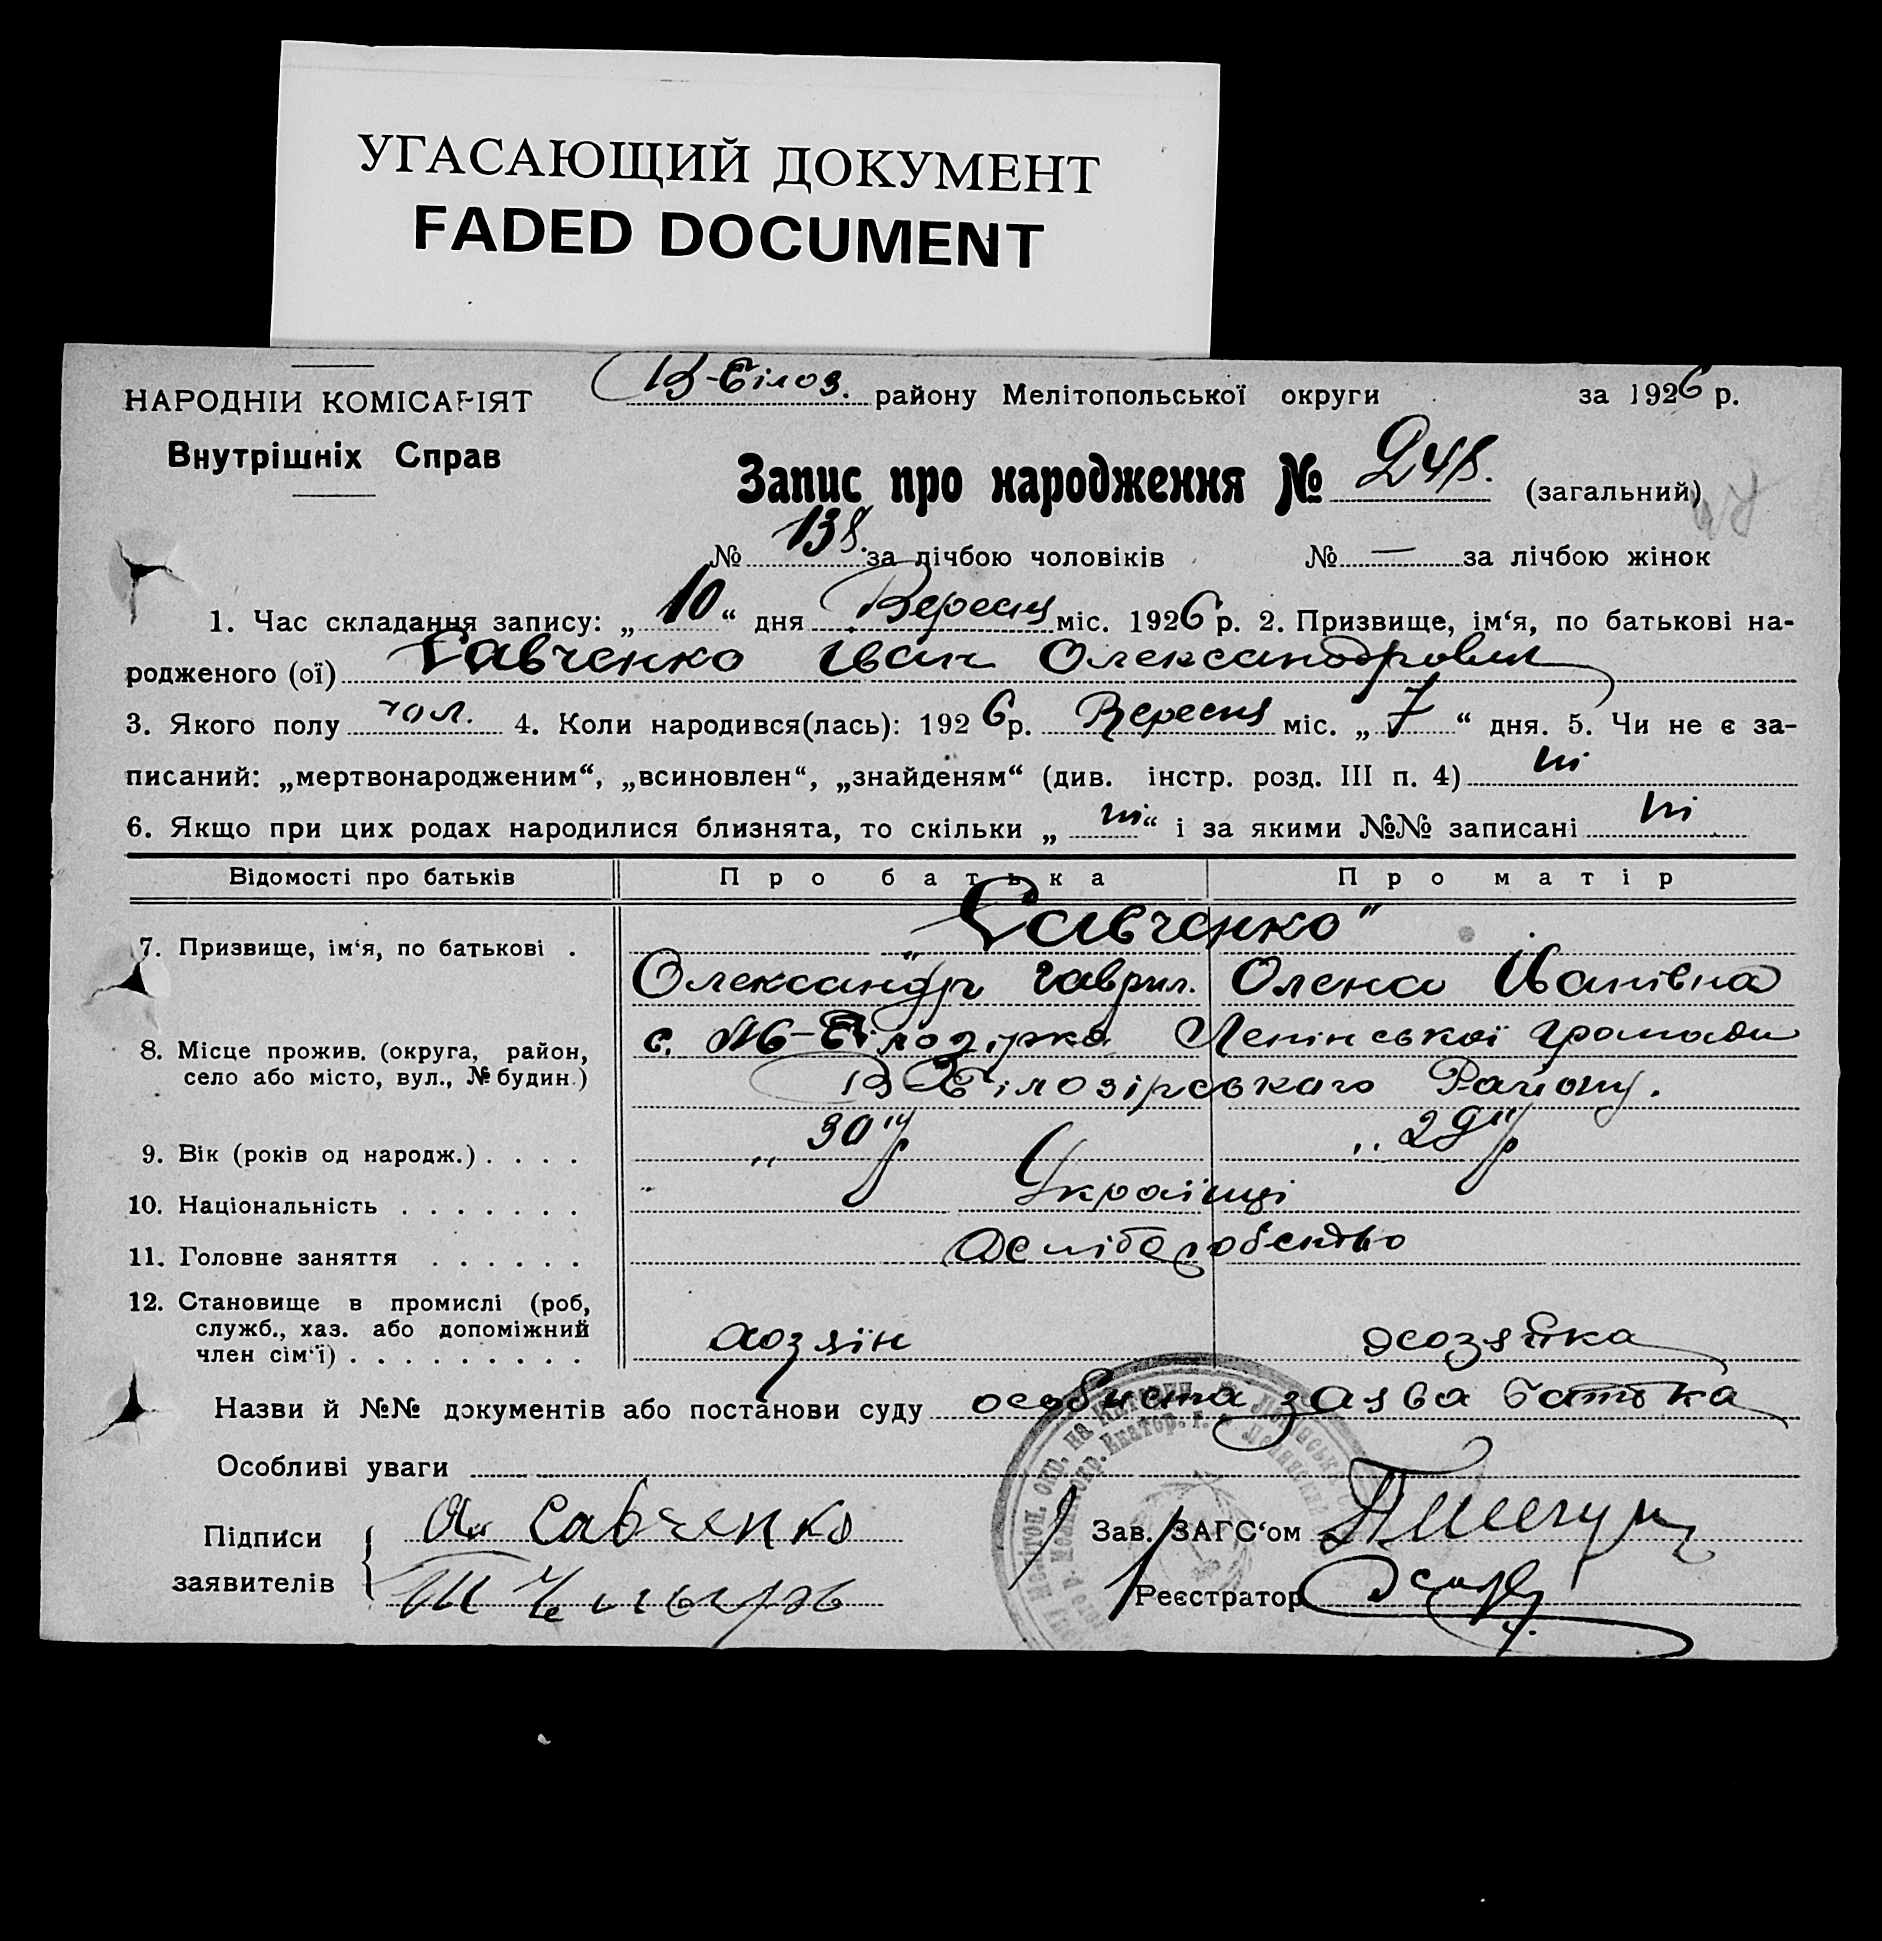 УГАСАЮЩИЙ ДОКУМЕНТ
FADED DOCUMENT
НАРОДНІЙ КОМІСАРІЯТ
Внутрішніх Справ
В-Білоз. району Мелітопольської округи за 1926 р.
Запис про народження № 248. (загальний)
№ 138. за лічбою чоловіків № — за лічбою жінок
1. Час складання запису: „ 10 “ дня Вересня міс. 1926 р. 2. Призвище, ім‘я, по батькові на-
родженого (ої) Савченко Іван Олександрович
3. Якого полу чол. 4. Коли народився(лась): 1926 р. Вересня міс. „ 7 “ дня. 5. Чи не є за-
писаний: „мертвонародженим“, „всиновлен“, „знайденям“ (див. інстр. розд. III п. 4) ні
6. Якщо при цих родах народилися близнята, то скільки „ ні “ і за якими №№ записані ні
Відомості про батьків Про батька Про матір
7. Призвище, ім‘я, по батькові . „Савченко“
Олександр Гаврил. Олена Іванівна
8. Місце прожив. (округа, район,
село або місто, вул., № будин.)
с. Білозірка Ленінської громади
В Білозірського Району.
9. Вік (років од народж.) . . . . 30 р 29 р
10. Національність . . . . . . . Українці
11. Головне заняття . . . . . .
12. Становище в промислі (роб,
служб., хаз. або допоміжний
член сім‘ї) . . . . . . . . . хозяїн хозяйка
Назви й №№ документів або постанови суду особиста заява батька
Особливі уваги
Підписи
заявителів
Савченко
Зав. ЗАГС‘ом
Реєстратор